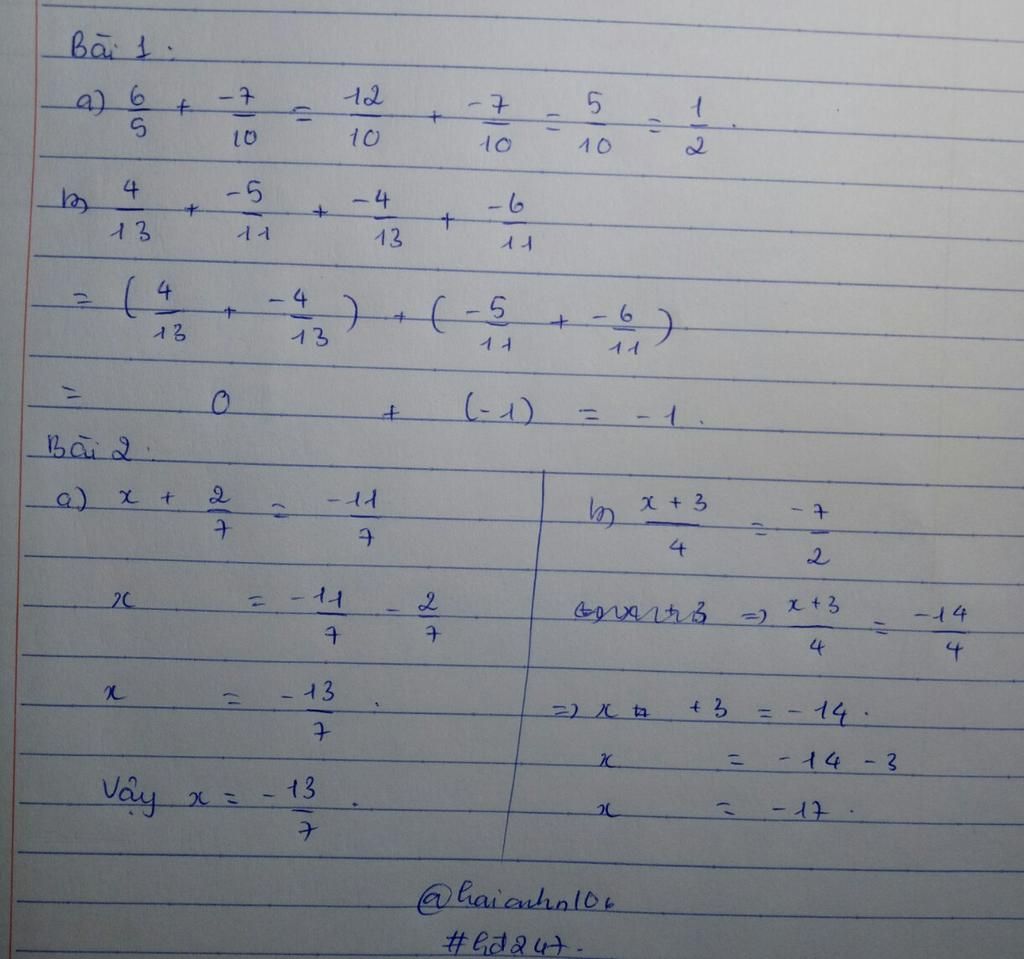 Bài 1:
a) 6/5 + -7/10 = 12/10 + -7/10 = 5/10 = 1/2.
b) 4/13 + -5/11 + -4/13 + -6/11
= (4/13 + -4/13) + (-5/11 + -6/11)
= 0 + (-1) = -1.
Bài 2.
a) x + 2/7 = -11/7
x = -11/7 - 2/7
x = -13/7.
Vậy x = -13/7.
b) x+3/4 = -7/2
=> x+3/4 = -14/4
=> x +3 = -14.
x = -14 -3
x = -17.
@haianhn106
#hđ247.